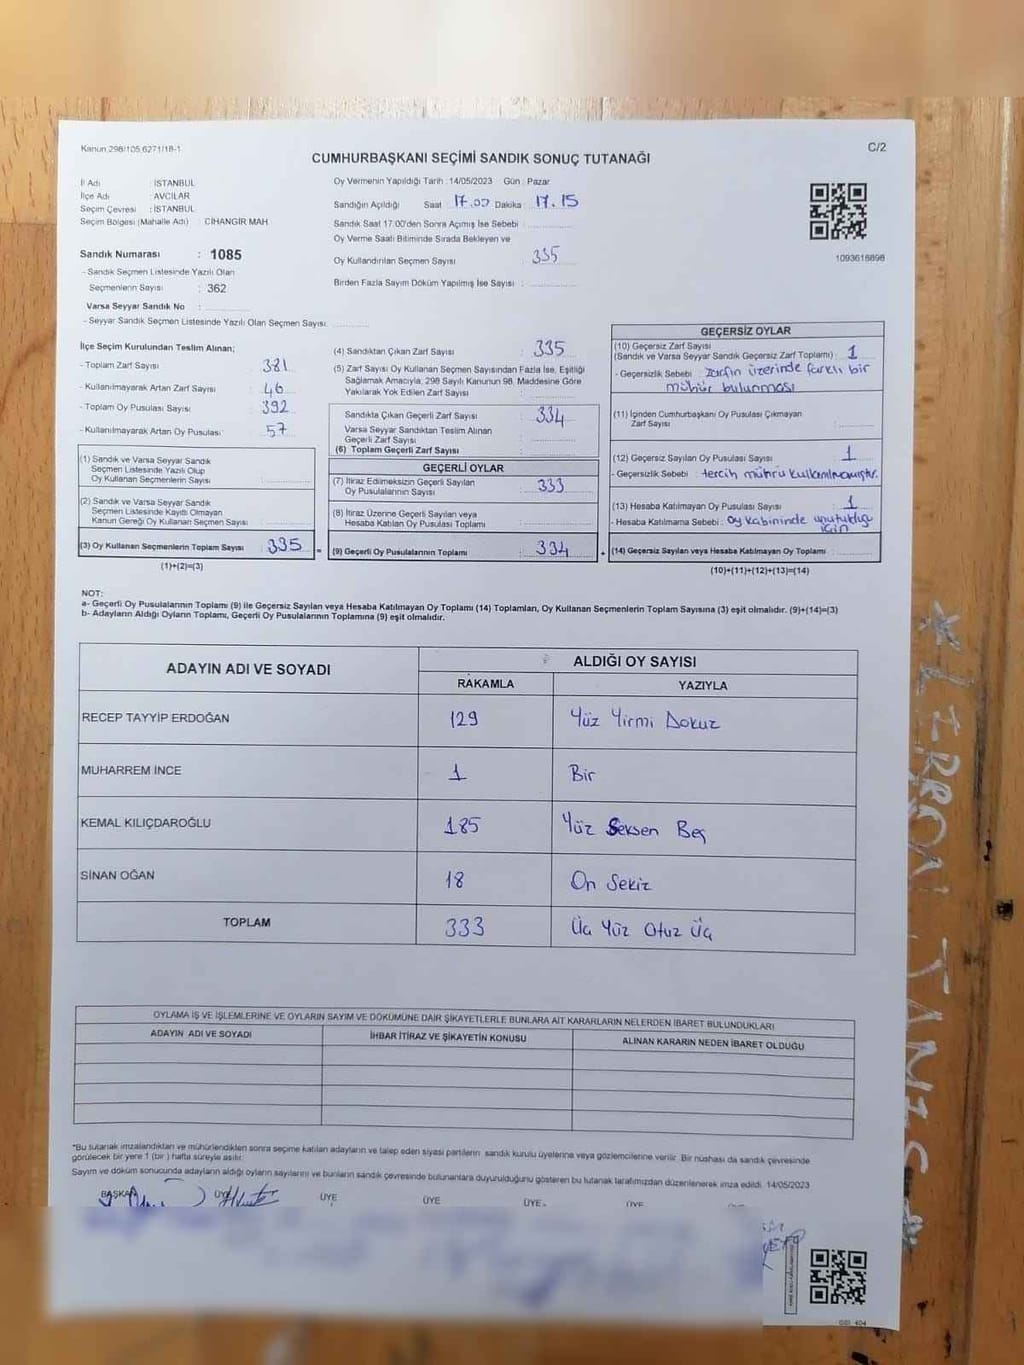 Kanun 298/105,6271/18-1
C/2
CUMHURBAŞKANI SEÇİMİ SANDIK SONUÇ TUTANAĞI
İl Adı : İSTANBUL
İlçe Adı : AVCILAR
Seçim Çevresi : İSTANBUL
Seçim Bölgesi (Mahalle Adı) : CİHANGİR MAH
Sandık Numarası : 1085
- Sandık Seçmen Listesinde Yazılı Olan
Seçmenlerin Sayısı : 362
Varsa Seyyar Sandık No :
- Seyyar Sandık Seçmen Listesinde Yazılı Olan Seçmen Sayısı
Oy Vermenin Yapıldığı Tarih : 14/05/2023 Gün : Pazar
Sandığın Açıldığı Saat : 17.00 Dakika : 17.15
Sandık Saat 17.00'den Sonra Açılmış İse Sebebi :
Oy Verme Saati Bitiminde Sırada Bekleyen ve
Oy Kullandırılan Seçmen Sayısı : 335
Birden Fazla Sayım Döküm Yapılmış İse Sayısı :
1093616898
İlçe Seçim Kurulundan Teslim Alınan;
- Toplam Zarf Sayısı : 381
- Kullanılmayarak Artan Zarf Sayısı : 46
- Toplam Oy Pusulası Sayısı : 392
- Kullanılmayarak Artan Oy Pusulası : 57
(1) Sandık ve Varsa Seyyar Sandık
Seçmen Listesinde Yazılı Olup
Oy Kullanan Seçmenlerin Sayısı :
(2) Sandık ve Varsa Seyyar Sandık
Seçmen Listesinde Kayıtlı Olmayan
Kanun Gereği Oy Kullanan Seçmen Sayısı :
(3) Oy Kullanan Seçmenlerin Toplam Sayısı : 335 =
(1)+(2)=(3)
(4) Sandıktan Çıkan Zarf Sayısı : 335
(5) Zarf Sayısı Oy Kullanan Seçmen Sayısından Fazla İse, Eşitliği
Sağlamak Amacıyla, 298 Sayılı Kanunun 98. Maddesine Göre
Yakılarak Yok Edilen Zarf Sayısı :
Sandıkta Çıkan Geçerli Zarf Sayısı : 334
Varsa Seyyar Sandıktan Teslim Alınan
Geçerli Zarf Sayısı :
(6) Toplam Geçerli Zarf Sayısı :
GEÇERLİ OYLAR
(7) İtiraz Edilmeksizin Geçerli Sayılan
Oy Pusulalarının Sayısı : 333
(8) İtiraz Üzerine Geçerli Sayılan veya
Hesaba Katılan Oy Pusulası Toplamı :
(9) Geçerli Oy Pusulalarının Toplamı : 334 +
GEÇERSİZ OYLAR
(10) Geçersiz Zarf Sayısı
(Sandık ve Varsa Seyyar Sandık Geçersiz Zarf Toplamı) : 1
- Geçersizlik Sebebi : Zarfın üzerinde farklı bir
mühür bulunması
(11) İçinden Cumhurbaşkanı Oy Pusulası Çıkmayan
Zarf Sayısı :
(12) Geçersiz Sayılan Oy Pusulası Sayısı : 1
- Geçersizlik Sebebi : tercih mührü kullanılmamıştır.
(13) Hesaba Katılmayan Oy Pusulası Sayısı : 1
- Hesaba Katılmama Sebebi : Oy kabininde unutulduğu
için
(14) Geçersiz Sayılan veya Hesaba Katılmayan Oy Toplamı :
(10)+(11)+(12)+(13)=(14)
NOT:
a- Geçerli Oy Pusulalarının Toplamı (9) ile Geçersiz Sayılan veya Hesaba Katılmayan Oy Toplamı (14) Toplamları, Oy Kullanan Seçmenlerin Toplam Sayısına (3) eşit olmalıdır. (9)+(14)=(3)
b- Adayların Aldığı Oyların Toplamı, Geçerli Oy Pusulalarının Toplamına (9) eşit olmalıdır.
ADAYIN ADI VE SOYADI ALDIĞI OY SAYISI
RAKAMLA YAZIYLA
RECEP TAYYİP ERDOĞAN 129 Yüz Yirmi Dokuz
MUHARREM İNCE 1 Bir
KEMAL KILIÇDAROĞLU 185 Yüz Seksen Beş
SİNAN OĞAN 18 On Sekiz
TOPLAM 333 Üç Yüz Otuz Üç
OYLAMA İŞ VE İŞLEMLERİNE VE OYLARIN SAYIM VE DÖKÜMÜNE DAİR ŞİKAYETLERLE BUNLARA AİT KARARLARIN NELERDEN İBARET BULUNDUKLARI
ADAYIN ADI VE SOYADI İHBAR İTİRAZ VE ŞİKAYETİN KONUSU ALINAN KARARIN NEDEN İBARET OLDUĞU
*Bu tutanak imzalandıktan ve mühürlendikten sonra seçime katılan adayların ve talep eden siyasi partilerin sandık kurulu üyelerine veya gözlemcilerine verilir. Bir nüshası da sandık çevresinde
görülecek bir yere 1 (bir) hafta süreyle asılır.
Sayım ve döküm sonucunda adayların aldığı oyların sayılarını ve bunların sandık çevresinde bulunanlara duyurulduğunu gösteren bu tutanak tarafımızdan düzenlenerek imza edildi. 14/05/2023
BAŞKAN ÜYE ÜYE ÜYE ÜYE ÜYE